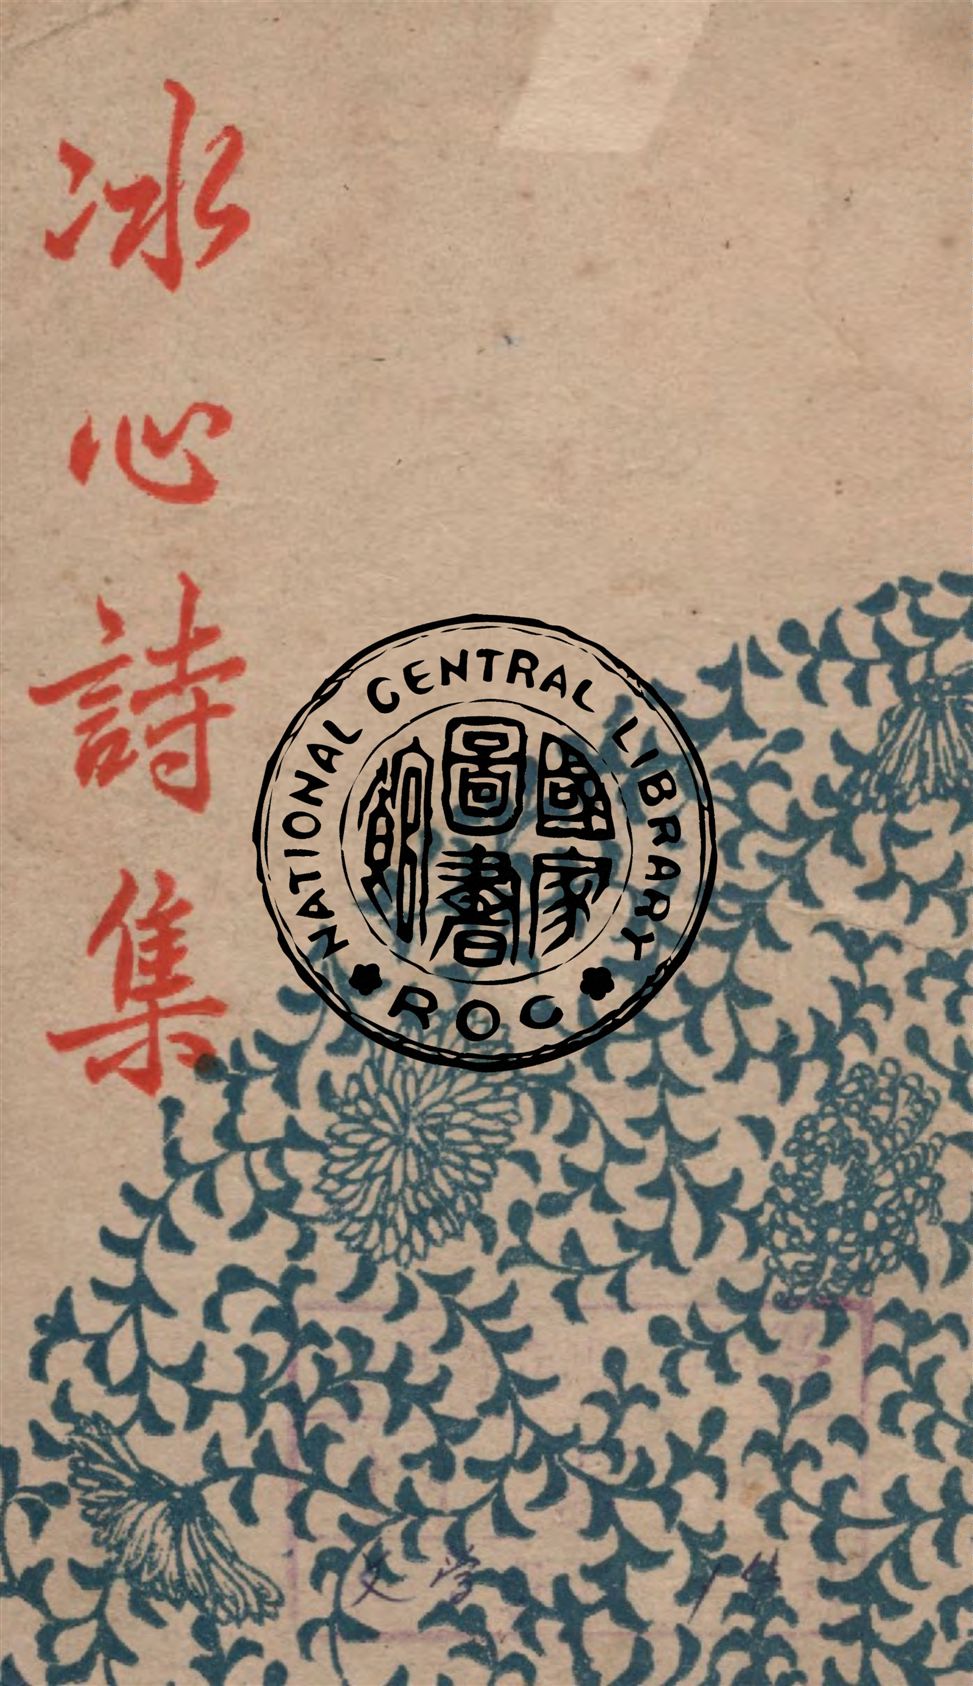 冰心詩集
NATIONAL CENTRAL LIBRARY
國家
圖書
館
ROC
文学